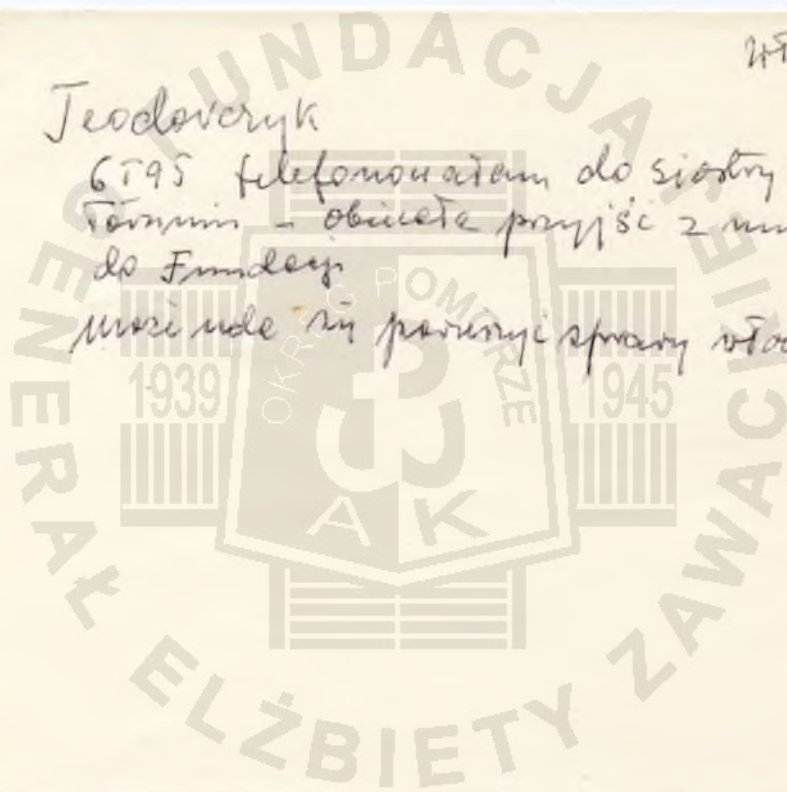 wł
Teodorczyk
6 I 95 telefonowałam do siostry
Toruniu – obiecała przyjść z
do Fundacji
może uda się poruszyć sprawy włoc
FUNDACJA GENERAŁ ELŻBIETY ZAWACKIEJ
OKRĘG POMORZE
1939 1945
AK